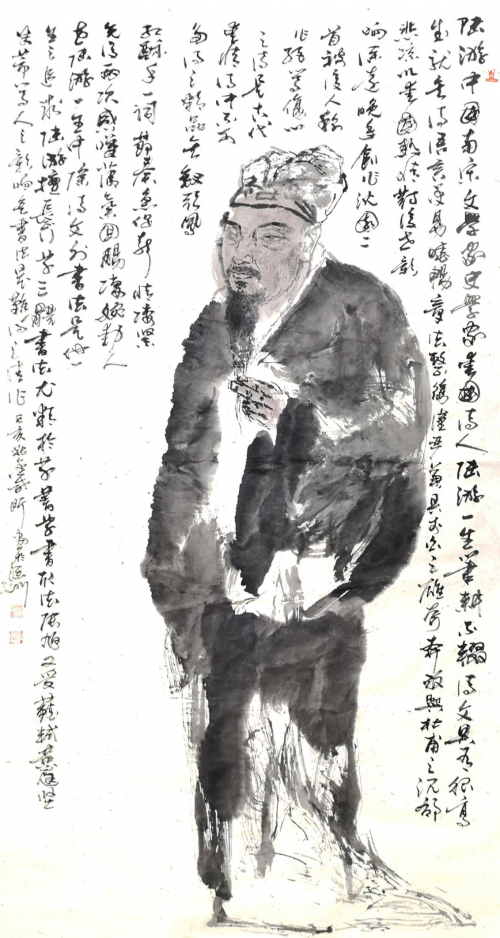 陆游中国南宋文学家史学家爱国诗人陆游一生笔耕不辍诗文具有很高
成就其诗语言平易晓畅章法整饬谨严兼具李白之雄奇奔放与杜甫之沉郁
悲凉以爱国热情对后世影
响深远晚年创作沈园二
首被后人称
作绝等伤心
之诗是古代
爱情诗中不可
多得之精品其钗头凤
红酥手一词
先后两次 荡气回肠凄婉动人
在陆游一生中除诗文外书法是他一
生之追求陆游擅长行草 书法尤精于草书草书取法张旭又受苏轼黄庭坚
米芾等人之影响其书法是难得之佳作己亥